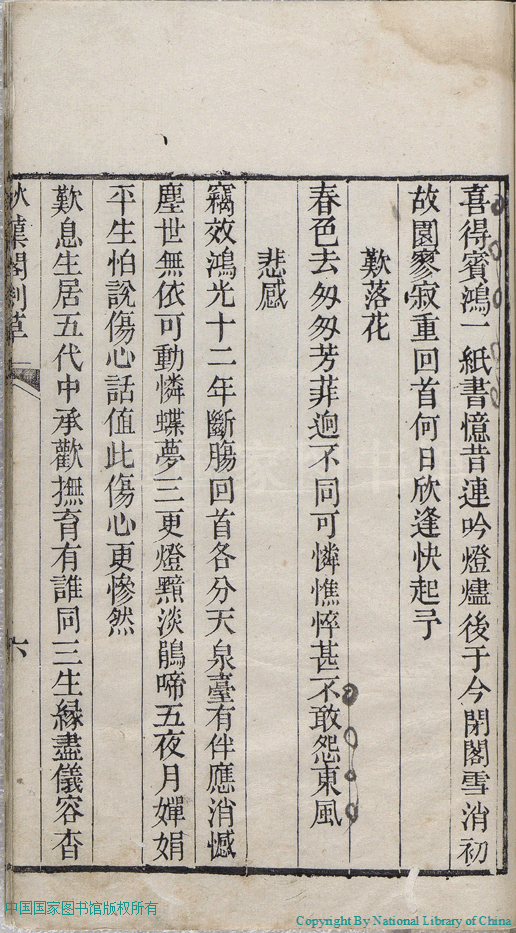 喜得賓鴻一紙書憶昔連吟燈燼後于今閉閣雪消初
故園寥寂重回首何日欣逢快起予
歎落花
春色去匆匆芳菲迥不同可憐憔悴甚不敢怨東風
悲感
竊效鴻光十二年斷腸回首各分天泉臺有伴應消憾
塵世無依可動憐蝶夢三更燈黯淡鵑啼五夜月嬋娟
平生怕說傷心話值此傷心更慘然
歎息生居五代中承歡撫育有誰同三生緣盡儀容杳
閣剩草
六
中国国家图书馆版权所有
Copyright By National Library of China